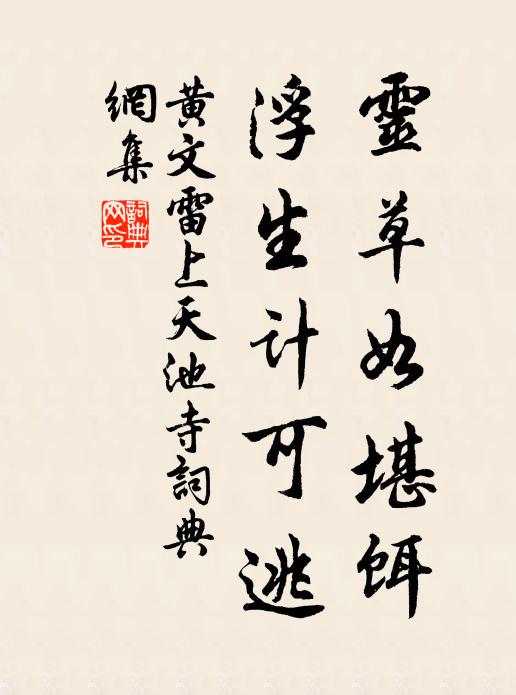 靈草如堪餌
浮生计可逃
黄文雷上天池寺詞典
網集
詞典網印